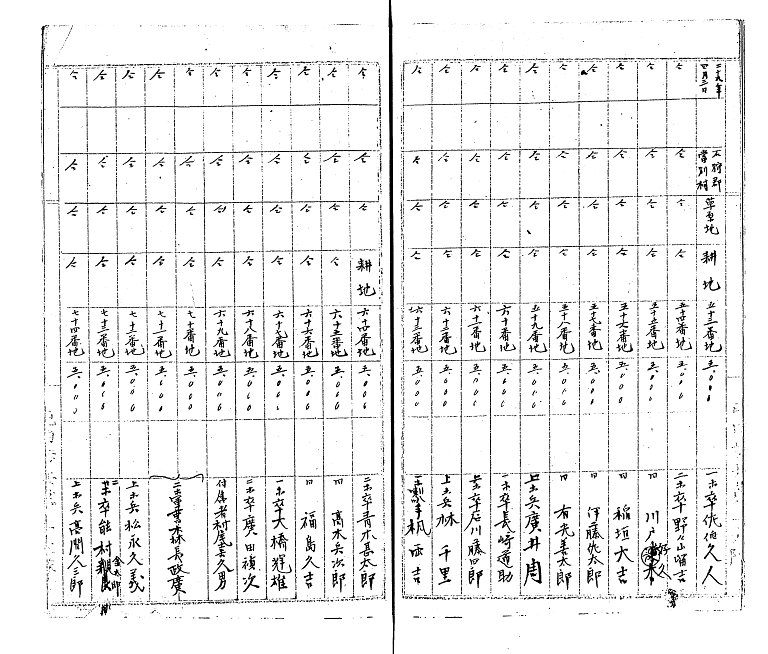 二十九年四月三日 石狩郡當別村 草原地 耕地 五十三番地 五,〇〇〇 一等卒佐伯久人
仝 仝 仝 仝 五十四番地 五,〇〇〇 二等卒野々山留吉
仝 仝 仝 仝 五十五番地 五,〇〇〇 同 川戸
仝 仝 仝 仝 五十六番地 五,〇〇〇 同 稲垣大吉
仝 仝 仝 仝 五十七番地 五,〇〇〇 同 伊藤佐太郎
仝 仝 仝 仝 五十八番地 五,〇〇〇 同 有光善太郎
仝 仝 仝 仝 五十九番地 五,〇〇〇 上等兵廣井周
仝 仝 仝 仝 六十番地 五,〇〇〇 一等卒長崎道助
仝 仝 仝 仝 六十一番地 五,〇〇〇 石川藤四郎
仝 仝 仝 仝 六十二番地 五,〇〇〇 上等兵林千里
仝 仝 仝 仝 六十三番地 五,〇〇〇 吉
仝 仝 仝 耕地 六十四番地 五,〇〇〇 二等卒青木喜太郎
仝 仝 仝 仝 六十五番地 五,〇〇〇 同 高木兵次郎
仝 仝 仝 仝 六十六番地 五,〇〇〇 同 福島久吉
仝 仝 仝 仝 六十七番地 五,〇〇〇 一等卒大橋輝雄
仝 仝 仝 仝 六十八番地 五,〇〇〇 二等卒廣田禎次
仝 仝 仝 仝 六十九番地 五,〇〇〇 村尾美久男
仝 仝 仝 仝 七十番地 五,〇〇〇
仝 仝 仝 仝 七十一番地 五,〇〇〇 森長政廣
仝 仝 仝 仝 七十二番地 五,〇〇〇 上等兵松永久義
仝 仝 仝 仝 七十三番地 五,〇〇〇 卒能村金太郎
仝 仝 仝 仝 七十四番地 五,〇〇〇 上等兵髙間久三郎